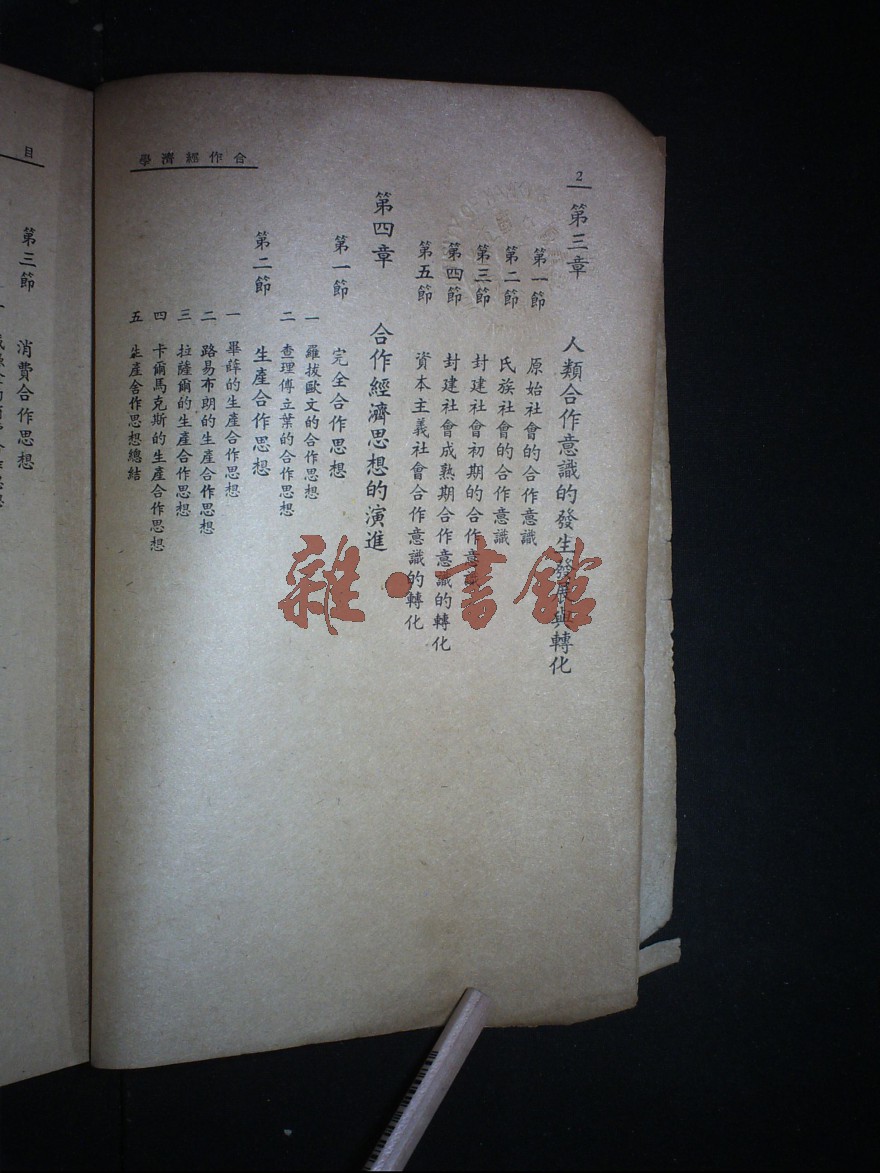 合作經濟學
2
第三章 人類合作意識的發生發展與轉化
第一節 原始社會的合作意識
第二節 氏族社會的合作意識
第三節 封建社會初期的合作意識
第四節 封建社會成熟期合作意識的轉化
第五節 資本主義社會合作意識的轉化
第四章 合作經濟思想的演進
第一節 完全合作思想
一 羅拔歐文的合作思想
二 查理傅立葉的合作思想
第二節 生產合作思想
一 畢薛的生產合作思想
二 路易布朗的生產合作思想
三 拉薩爾的生產合作思想
四 卡爾馬克斯的生產合作思想
五 生產合作思想總結
目
第三節 消費合作思想
雜·書館